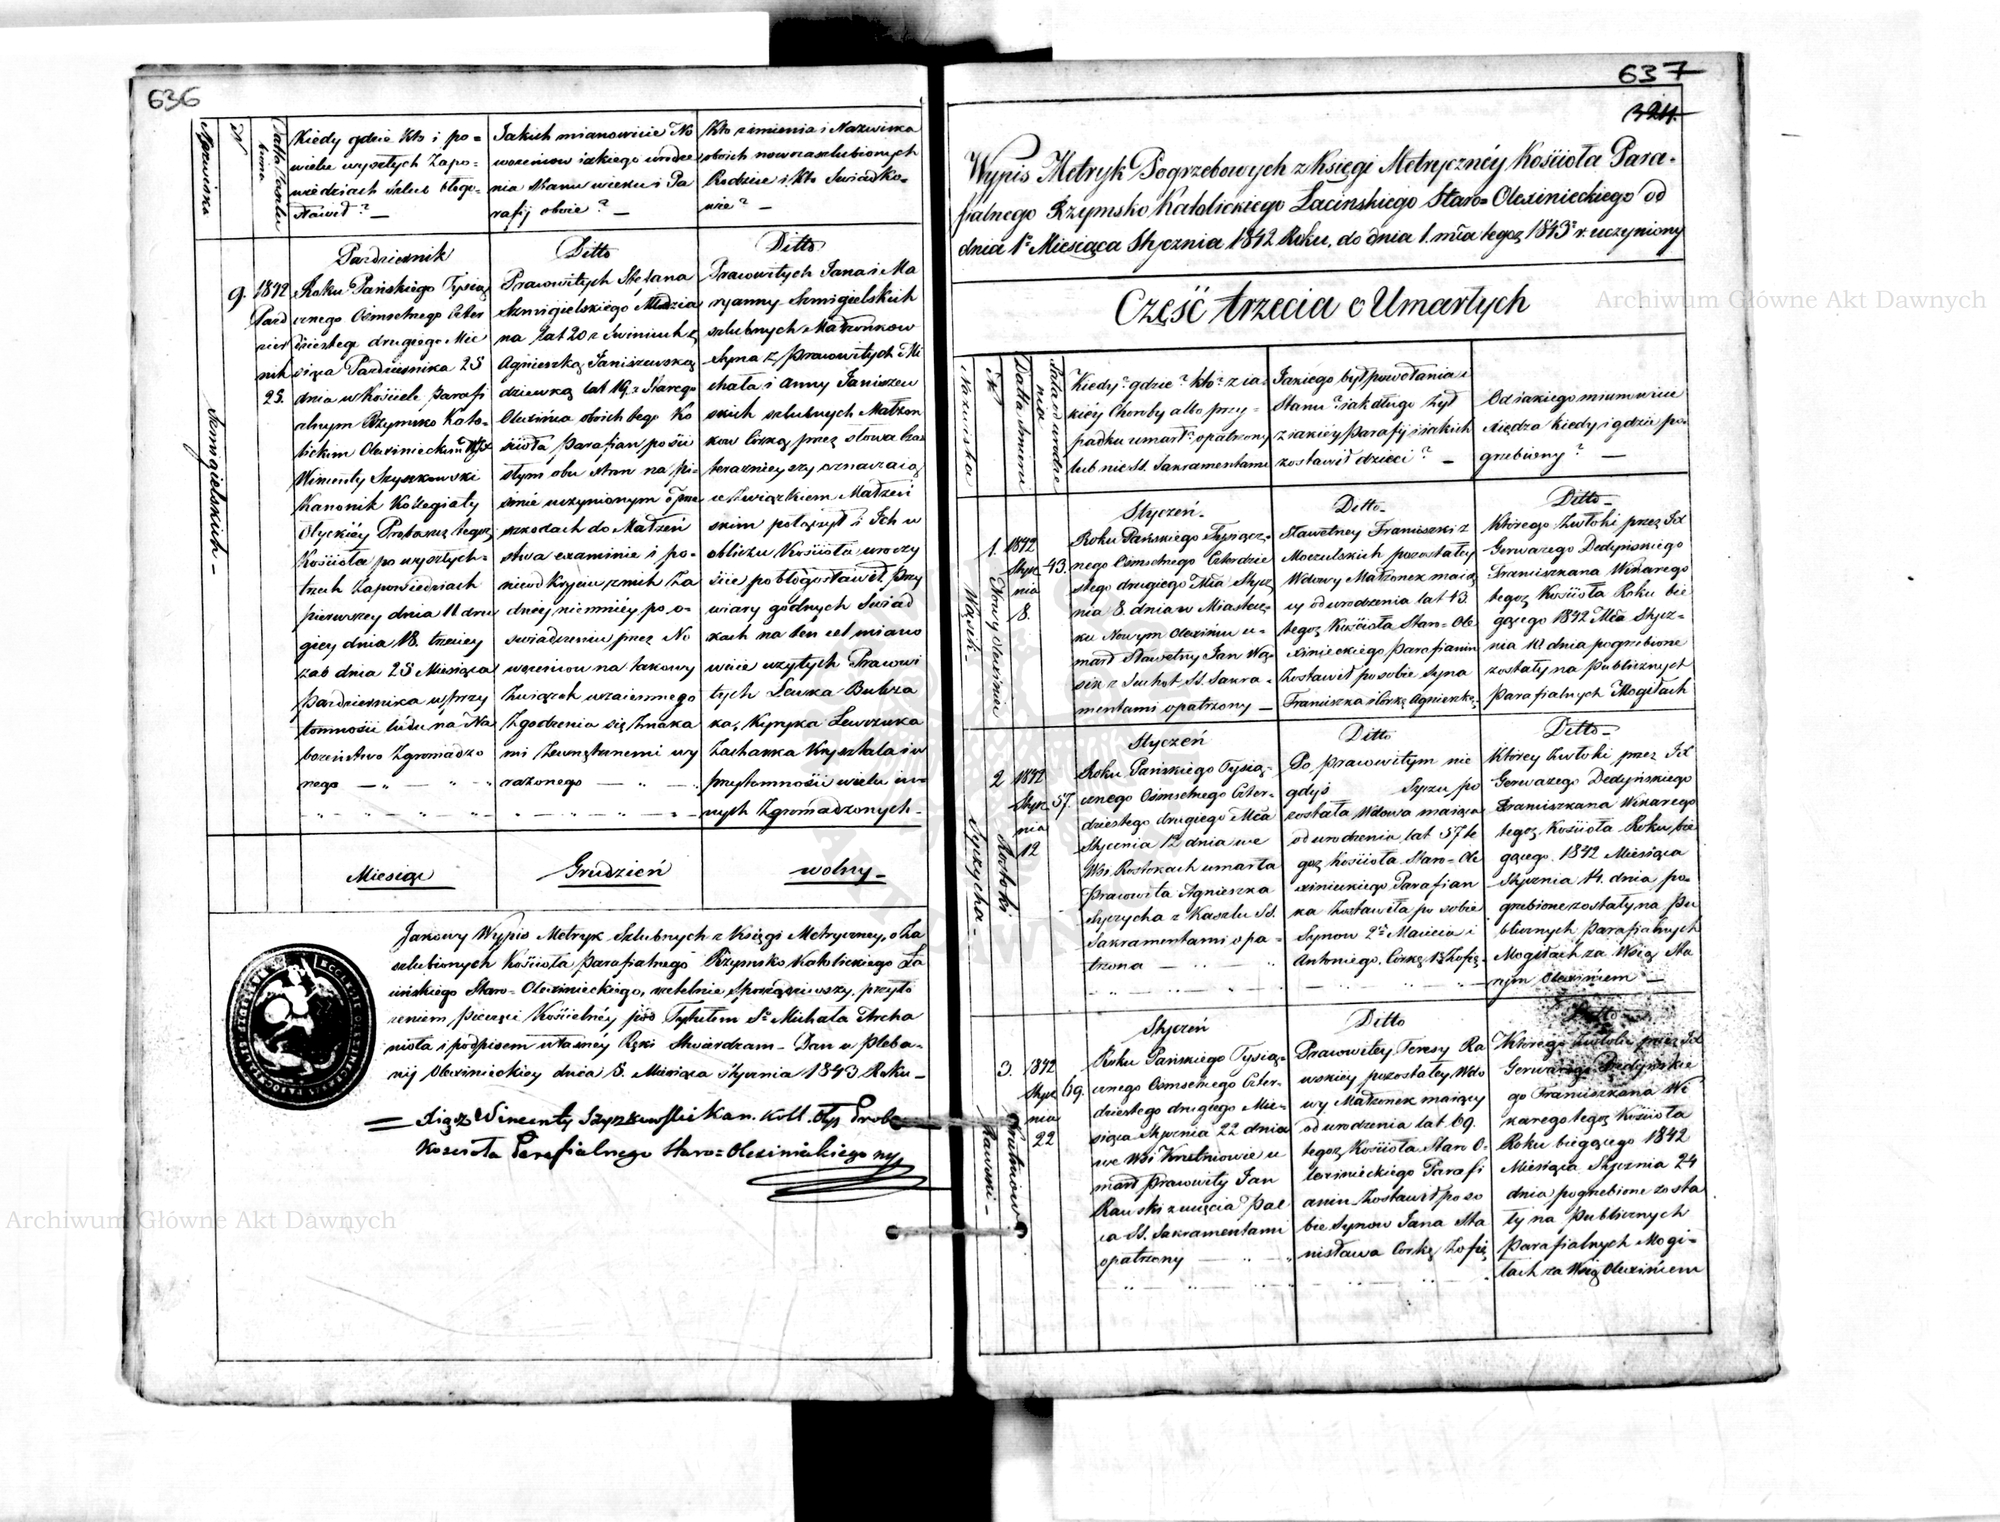 636
Nazwiska
N
Datta szlubu
Kiedy gdzie kto i po=
wielu wyszłych Zapo=
wiedziach szlub błogo=
sławił? —
Jakich mianowicie No
wożeńców iakiego urodze
nia stanu wieku i Pa
rafij obóie? —
Kto z imienia i Nazwiska
oboich nowozaszlubionych
Rodzice i kto Swiadko=
wie? —
Szmigielskich —
9.
1842
Pazd
zier
nik
25.
Pazdziernik
Roku Pańskiego Tysiąc
cznego Osmsetnego Czter
dziestego drugiego Mie
siąca Pazdziernika 25
dnia w Kościele Parafi
alnym Rzymsko Kato=
lickim Olexinieckim
Wincenty Szyszkowski
Kanonik Kollegiaty
Ołyckiéy Proboszcz tegoż
Kościoła po wyszłych
trzech Zapowiedziach
pierwszey dnia 11 dru
giey dnia 18. trzeciey
zaś dnia 25 Miesiąca
Pazdziernika w przy
tomności ludu na Na
bożeństwo Zgromadzo
nego
Ditto
Pracowitych Stefana
Szmigielskiego Młodzia
na lat 20 z Swiniuch z
Agnieszką Janiszewską
dziewką lat 19. z Starego
Olexińca oboich tego Ko
ścioła Parafian po ści
słym obu stron na pi=
smie uczynionym o prze
szkodach do Małżeń
stwa examinie i po=
nieodkryciu zmich ża
dney niemniéy po o=
swiadczeniu przez No
wożeńcow na takowy
Związek wzaiemnego
Zgodzenia się Znaka
mi Zewnętrznemi wy
rażonego
Ditto
Pracowitych Jana i Ma
ryanny Szmigielskich
szlubnych Małżonkow
Syna z Pracowitych Mi
chała i Anny Janiszew
skich szlubnych Małżon
kow Córką przez słowa czas
teraznieyszy oznaczaią
ce Związkiem Małżeń
skim połączył i Ich w
obliczu Kościoła uroczy
ście pobłogosławił, Przy
wiary godnych Swiad
kach na ten cel miano
wicie użytych Pracowi
tych Lewka Bulcza
ka, Kyryka Lewczuka
Zacharka Krysztala i w
przytomności wielu in=
nych Zgromadzonych —
Miesiąc
Grudzień
wolny —
Jakowy Wypis Metryk Szlubnych z Księgi Metryczney, o Za
szlubionych Kościoła Parafialnego Rzymsko Katolickiego Ła
cinskiego Staro=Olexinieckiego, rzetelnie Sporządziwszy, przyło
żeniem pieczęci Kościelnéy pod Tytułem Sgo Michała Archa
nioła i podpisem własnéy Ręki Stwierdzam — Dan w Pleba=
nij Olexinieckiey dnia 5. Miesiąca Stycznia 1843 Roku —
Xiądz Wincenty Szyszkowski Kan. Koll. Ołyc Prob
Kościoła Parafialnego Staro=Olexinieckiego
637
324.
Wypis Metryk Pogrzebowych z Księgi Metrycznéy Kościoła Para=
fialnego Rzymsko Katolickiego Łacinskiego Staro=Olexinieckiego od
dnia 1º Miesiąca Stycznia 1842 Roku, do dnia 1. mca tegoż 1843º r. uczyniony
Część trzecia o Umarłych
Nazwiska
N
Datta śmierci
Latta od urodze
nia
Kiedy? gdzie? kto? z ia=
kiéy Choroby albo przy=
padku umarł? opatrzony
lub nie SS. Sakramentami
Jakiego był powołania i
Stanu? iak długo żył
z iakiéy Parafij i iakich
zostawił dzieci? —
Od iakiego mianowicie
Xiędza kiedy i gdzie po=
grzebiony? —
Wąsik —
Nowy Olexiniec
1.
1842
Stycz
nia
8.
43.
Styczeń
Roku Pańskiego Tysiącz=
nego Osmsetnego Czterdzie
stego drugiego Mca Stycz
nia 8. dnia w Miastecz=
ku Nowym Olexińcu u=
marł Sławetny Jan Wą=
sik z Suchot, SS. Sakra=
mentami opatrzony —
Ditto —
Sławetney Franciszki z
Moczulskich pozostałey
Wdowy Małżonek maią
cy od urodzenia lat 43.
tegoż Kościoła Staro=Ole
xinieckiego Parafianin
Zostawił po sobie Syna
Franciszka i Córkę Agnieszkę,
Ditto —
Którego Zwłoki przez Xd
Gerwazego Dedyńskiego
Franciszkana Wikarego
tegoż Kościoła Roku bie
gącego 1842 Mca Stycz=
nia 10 dnia pogrzebione
zostały na Publicznych
Parafialnych Mogiłach
Syrzycha —
Rostoki
2
1842
Stycz
nia
12
57.
Styczeń
Roku Pańskiego Tysią=
cznego Osmsetnego Czter=
dziestego drugiego Mca
Stycznia 12 dnia we
Wsi Rostokach umarła
Pracowita Agnieszka
Syrzycha z Kaszlu SS.
Sakramentami opa=
trzona —
Ditto
Po Pracowitym nie
gdyś Syrzu po
została Wdowa maiąca
od urodzenia lat 57 te
goż Kościoła Staro=Ole
xinieckiego Parafian
ka Zostawiła po sobie
Synow 2ch Macieia i
Antoniego, Córkę 1 Zofię,
Ditto —
Którey Zwłoki przez Xd
Gerwazego Dedyńskiego
Franciszkana Wikarego
tegoż Kościoła Roku bie
gącego 1842 Miesiąca
Stycznia 14. dnia po=
grzebione zostały na Pu
blicznych Parafialnych
Mogiłach za Wsią Sta
rym Olexińcem —
Rawski —
3.
1842
Stycz
nia
22
69.
Styczeń
Roku Pańskiego Tysią=
cznego Osmsetnego Czter=
dziestego drugiego Mie=
siąca Stycznia 22 dnia
we Wsi Krutniowie u
marł Pracowity Jan
Rawski z
SS. Sakramentami
opatrzony
Ditto
Pracowitey Teresy Ra
wskiey pozostałey Wdo
wy Małżonek maiący
od urodzenia lat 69.
tegoż Kościoła Staro O=
lexinieckiego Parafi
anin Zostawił po so
bie Synow Jana Sta
nisława Córkę Zofię,
Ditto
Którego Zwłoki przez Xd
Gerwazego Dedyńskie
go Franciszkana Wi
karego tegoż Kościoła
Roku biegącego 1842
Miesiąca Stycznia 24
dnia pogrzebione zosta
ły na Publicznych
Parafialnych Mogi=
łach za Wsią Olexińcem
Archiwum Główne Akt Dawnych
Archiwum Główne Akt Dawnych